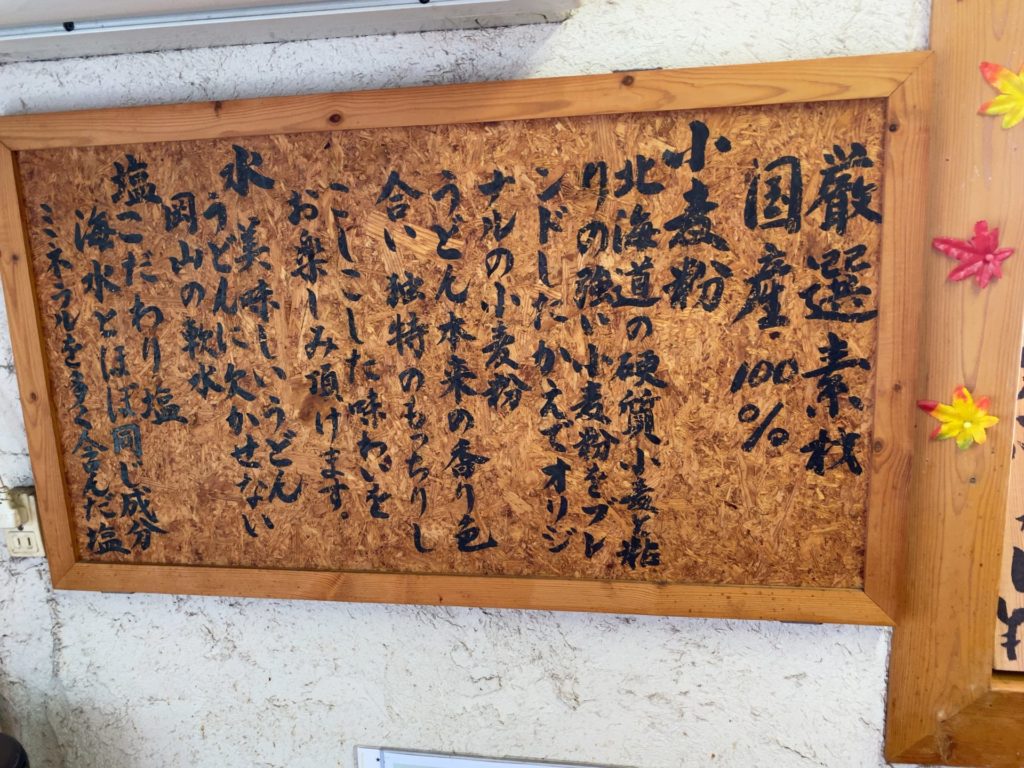 厳選素材
国産・100%
小麦粉
北海道の硬質小麦と粘
りの強い小麦粉をブレ
ンドしたかえでオリジ
ナルの小麦粉
うどん本来の香り色
合い独特のもっちりし
こしこした味わいを
お楽しみ頂けます。
水 美味しいうどん
うどんに欠かせない
岡山の軟水
塩こだわり塩
海水とほぼ同じ成分
ミネラルを多く含んだ塩